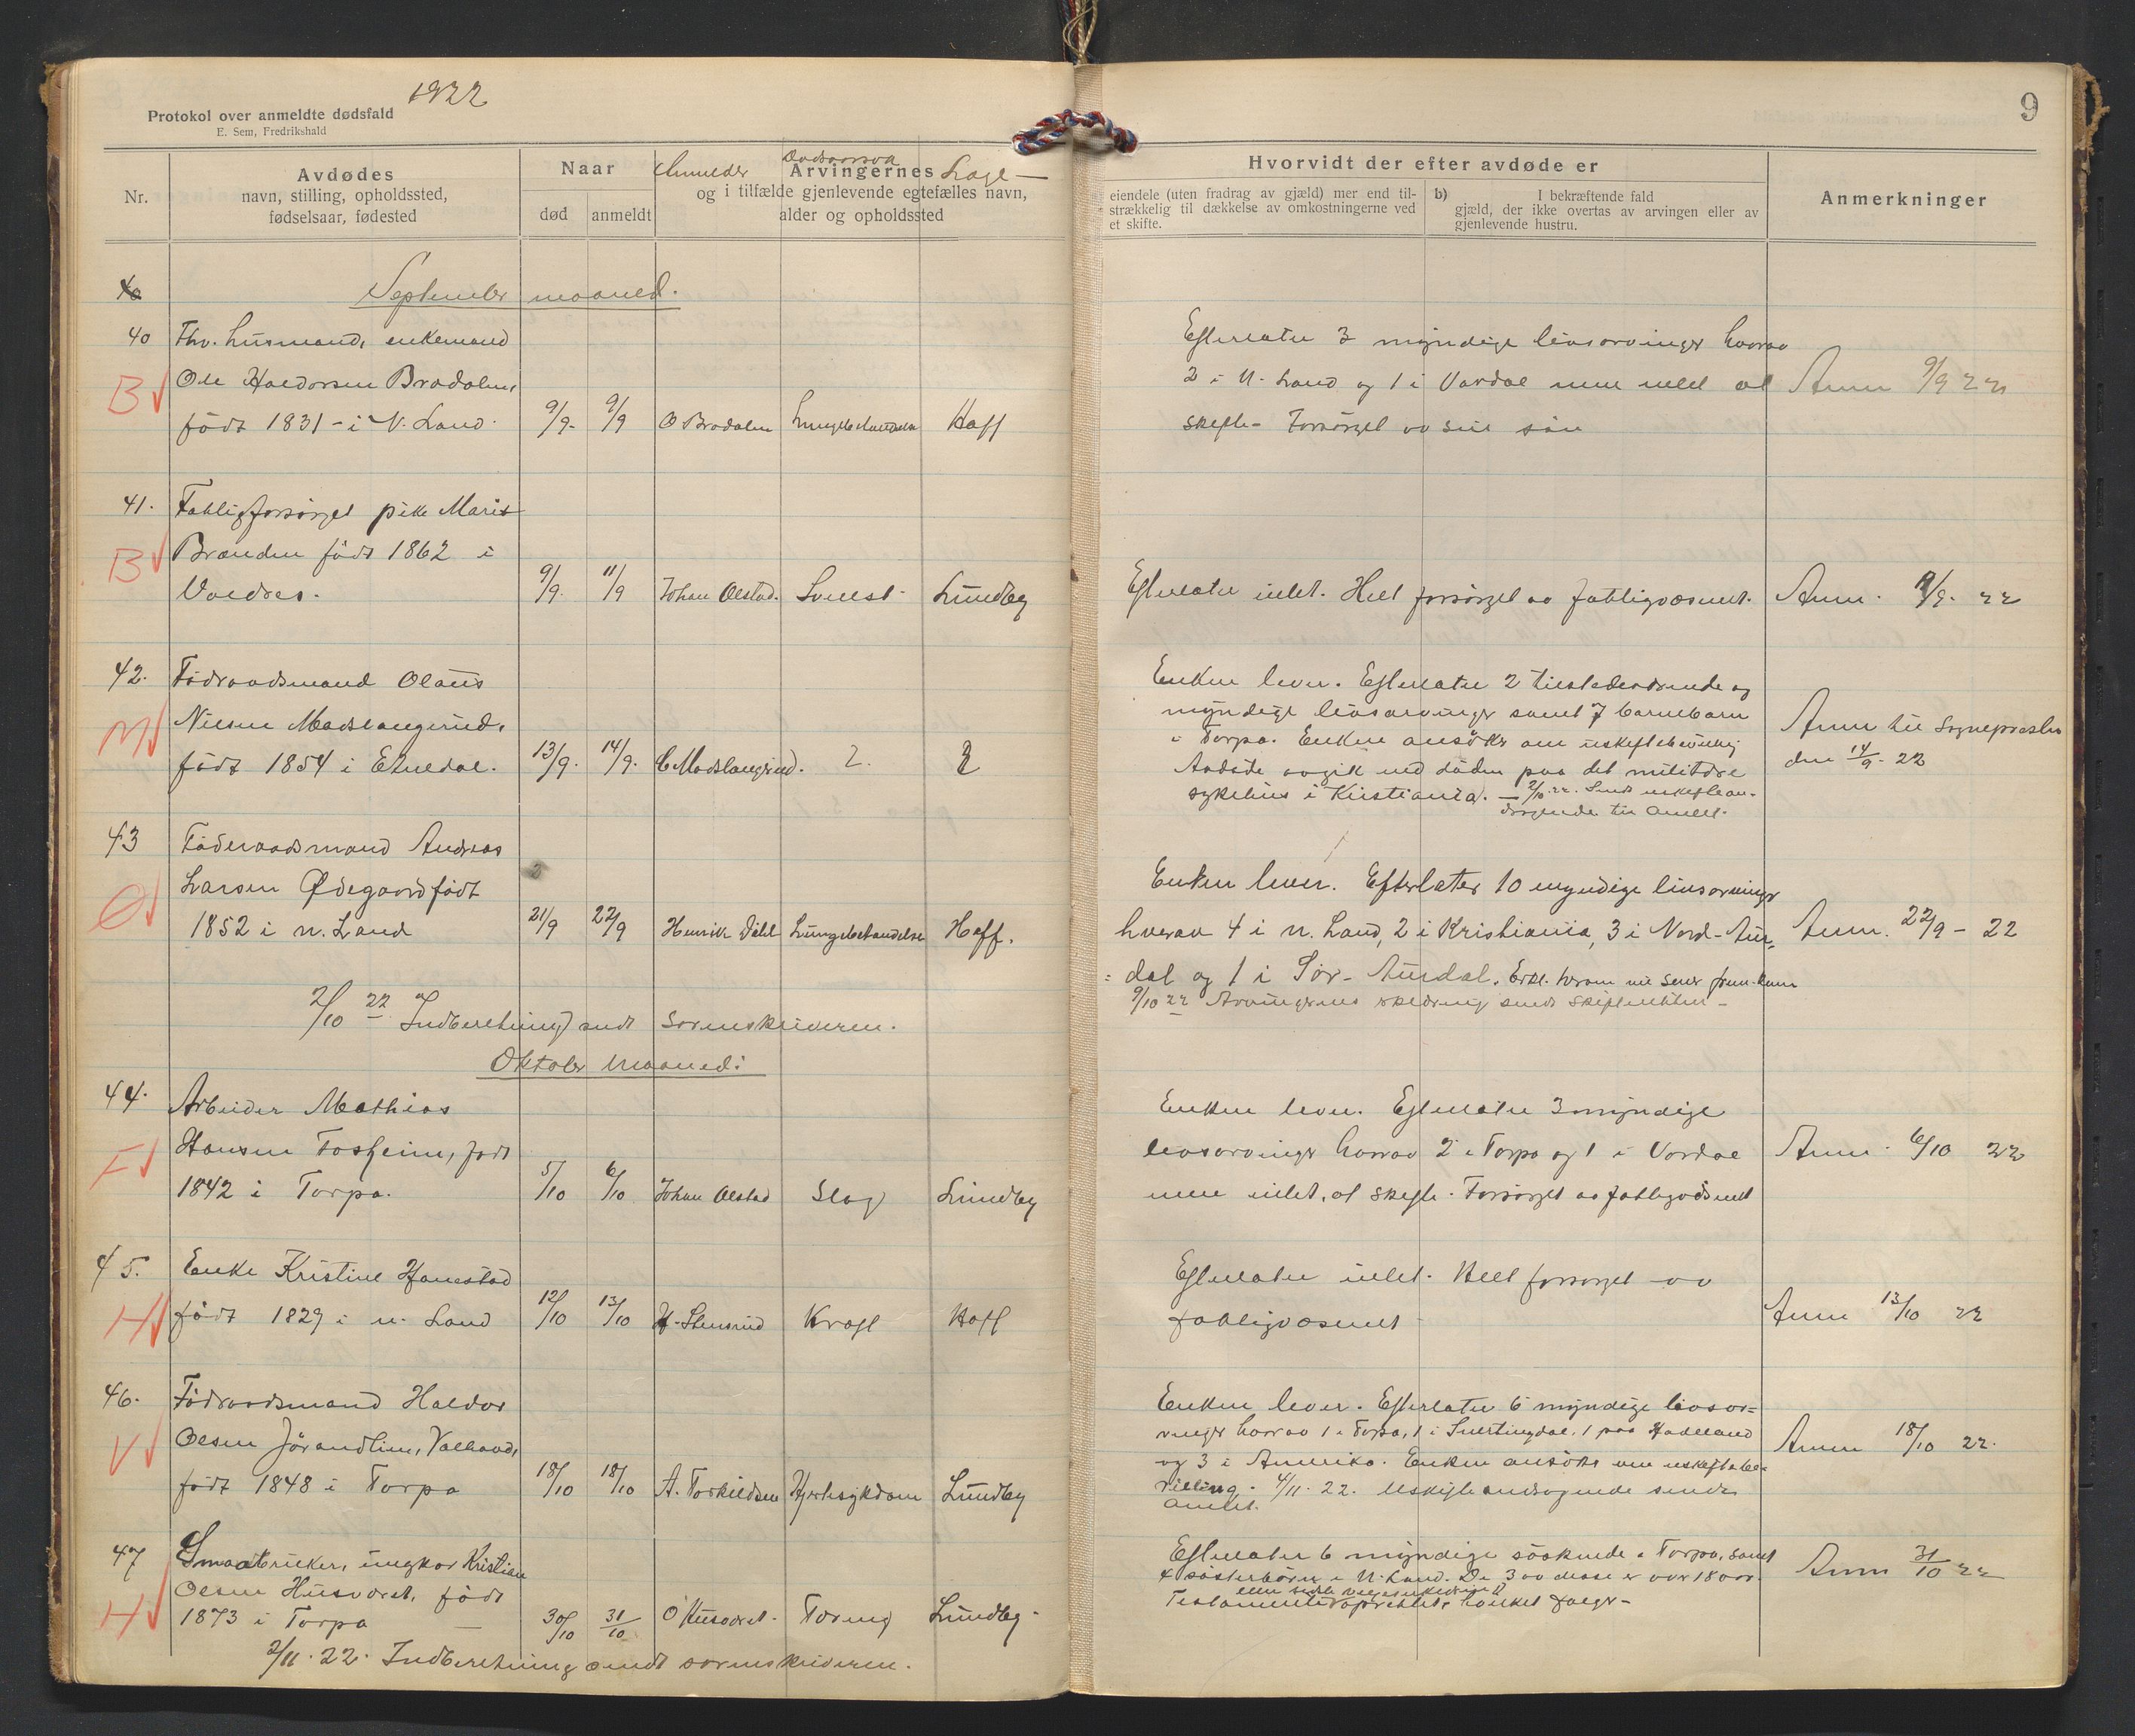 1922
Protokol over anmeldte dødsfald
E. Sem, Fredrikshald
Nr.
Avdødes
navn, stilling, opholdssted,
fødselsaar, fødested
Naar
død anmeldt
Anmelder Dødsaarsak Læge
Arvingernes
og i tilfælde gjenlevende egtefælles navn,
alder og opholdssted
9
Hvorvidt der efter avdøde er
eiendele (uten fradrag av gjæld) mer end til-
strækkelig til dækkelse av omkostningerne ved
et skifte.
b) I bekræftende fald
gjæld, der ikke overtas av arvingen eller av
gjenlevende hustru.
Anmerkninger
September maaned.
40 Fhv. husmand, enkemand
B Ole Haldorsen Bradalen,
født 1831 - i N. Land. 9/9 9/9 O Bradalen Lungebetændelse Hoff
Efterlater 3 myndige livsarvinger hvorav
2 i N. Land og 1 i Vardal men intet at
skifte. Forsørget av sin søn
Anm 9/9 22
41. Fattigforsørget pike Marit
B Brænden født 1862 i
Valdres. 9/9 11/9 Johan Olstad. Lundby
Efterlater intet. Helt forsørget av fattigvæsenet. Anm. 22
42. Födraadsmand Olaus
M Nilsen Madslangrud,
født 1854 i Etnedal. 13/9 14/9 C Madslangrud. ? ?
Enken lever. Efterlater 2 tilstedeværende og
myndige livsarvinger samt 7 barnebarn
i Torpa. Enken ansöker om uskiftebevilling
Avdøde avgik ved døden paa det militære
sykehus i Kristiania. - 2/10 22. Sendt uskiftean-
dragende til amtet.
Anm til Sogneprosten
den 14/9 22
43 Föderaadsmand Andreas
Ø Larsen Ødegaard født
1852 i n. Land 21/9 22/9 Henrik Dahl Lungebetændelse Hoff.
Enken lever. Efterlater 10 myndige livsarvinger
hvorav 4 i n. Land, 2 i Kristiania, 3 i Nord-Aur-
dal og 1 i Sør-Aurdal.
9/10 22 Arvingernes erklæring sendt skifteretten -
Anm. 22/9 - 22
2/10 22 Indberetning sendt sorenskriveren.
Oktober maaned:
44. Arbeider Mathias
F Hansen Fosheim, født
1842 i Torpa. 5/10 6/10 Johan Olstad Slag Lundby
Enken lever. Efterlater 3 myndige
livsarvinger hvorav 2 i Torpa og 1 i Vardal
men intet, at skifte. Forsørget av fattigvæsenet
Anm. 6/10 22
45. Enke Kristine Hanestad
H født 1829 i n. Land 12/10 13/10 H. Stensrud Kræft Hoff
Efterlater intet. Helt forsørget av
fattigvæsenet
Anm 13/10 22
46. Födraadsmand Haldor
V Olsen Jörandlien, Valhovd,
født 1848 i Torpa 18/10 18/10 A. Torkildsen Hjertesykdom Lundby
Enken lever. Efterlater 6 myndige livsar-
vinger hvorav 1 i Torpa, 1 i Snertingdal, 1 paa Hadeland
og 3 i Amerika. Enken ansöker om uskiftebe-
villing. 4/11. 22. Uskifteandragende sendt
amtet.
Anm 18/10 22.
47 Smaabruker, ungkar Kristian
H Olsen Husværet, født
1873 i Torpa 30/10 31/10 O Husværet. Tæring Lundby
Efterlater 6 myndige söskende i Torpa, samt
4 søsterbørn i N. Land. De 3 av disse er over 18 aar.
Testamente oprettet, hvilket følger -
Anm 31/10 22
2/11. 22. Indberetning sendt sorenskriveren.